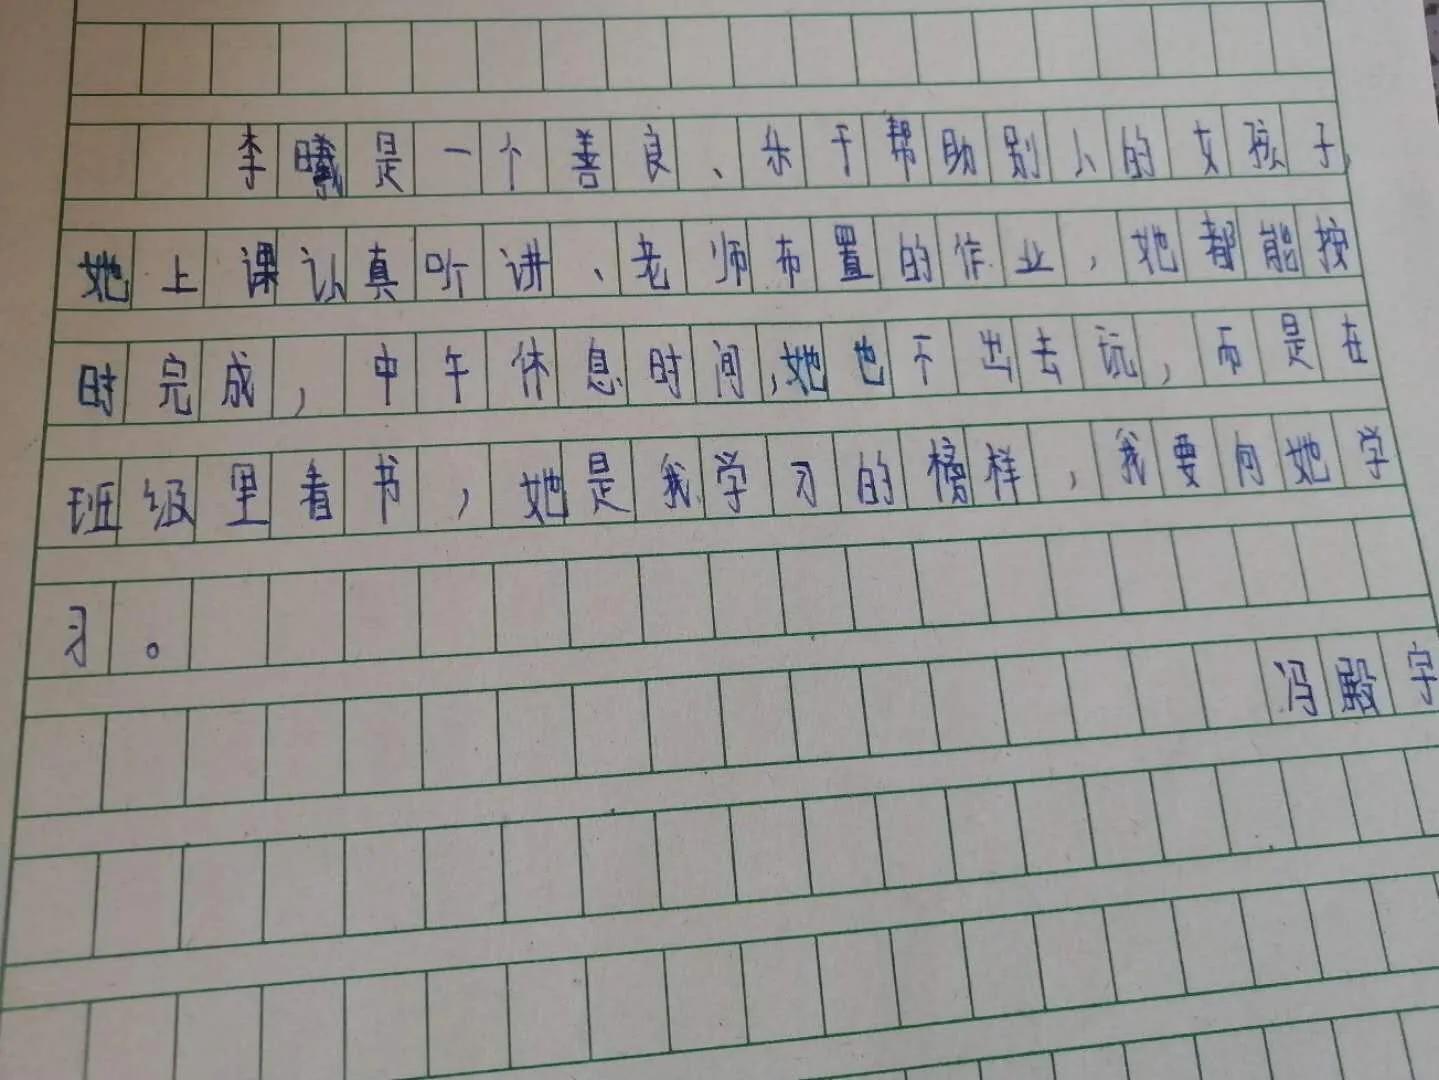 李曦是一个善良、乐于帮助别人的女孩子,
她上课认真听讲、老师布置的作业，她都能按
时完成，中午休息时间,她也不出去玩，而是在
班级里看书，她是我学习的榜样，我要向她学
习。
冯殿宇